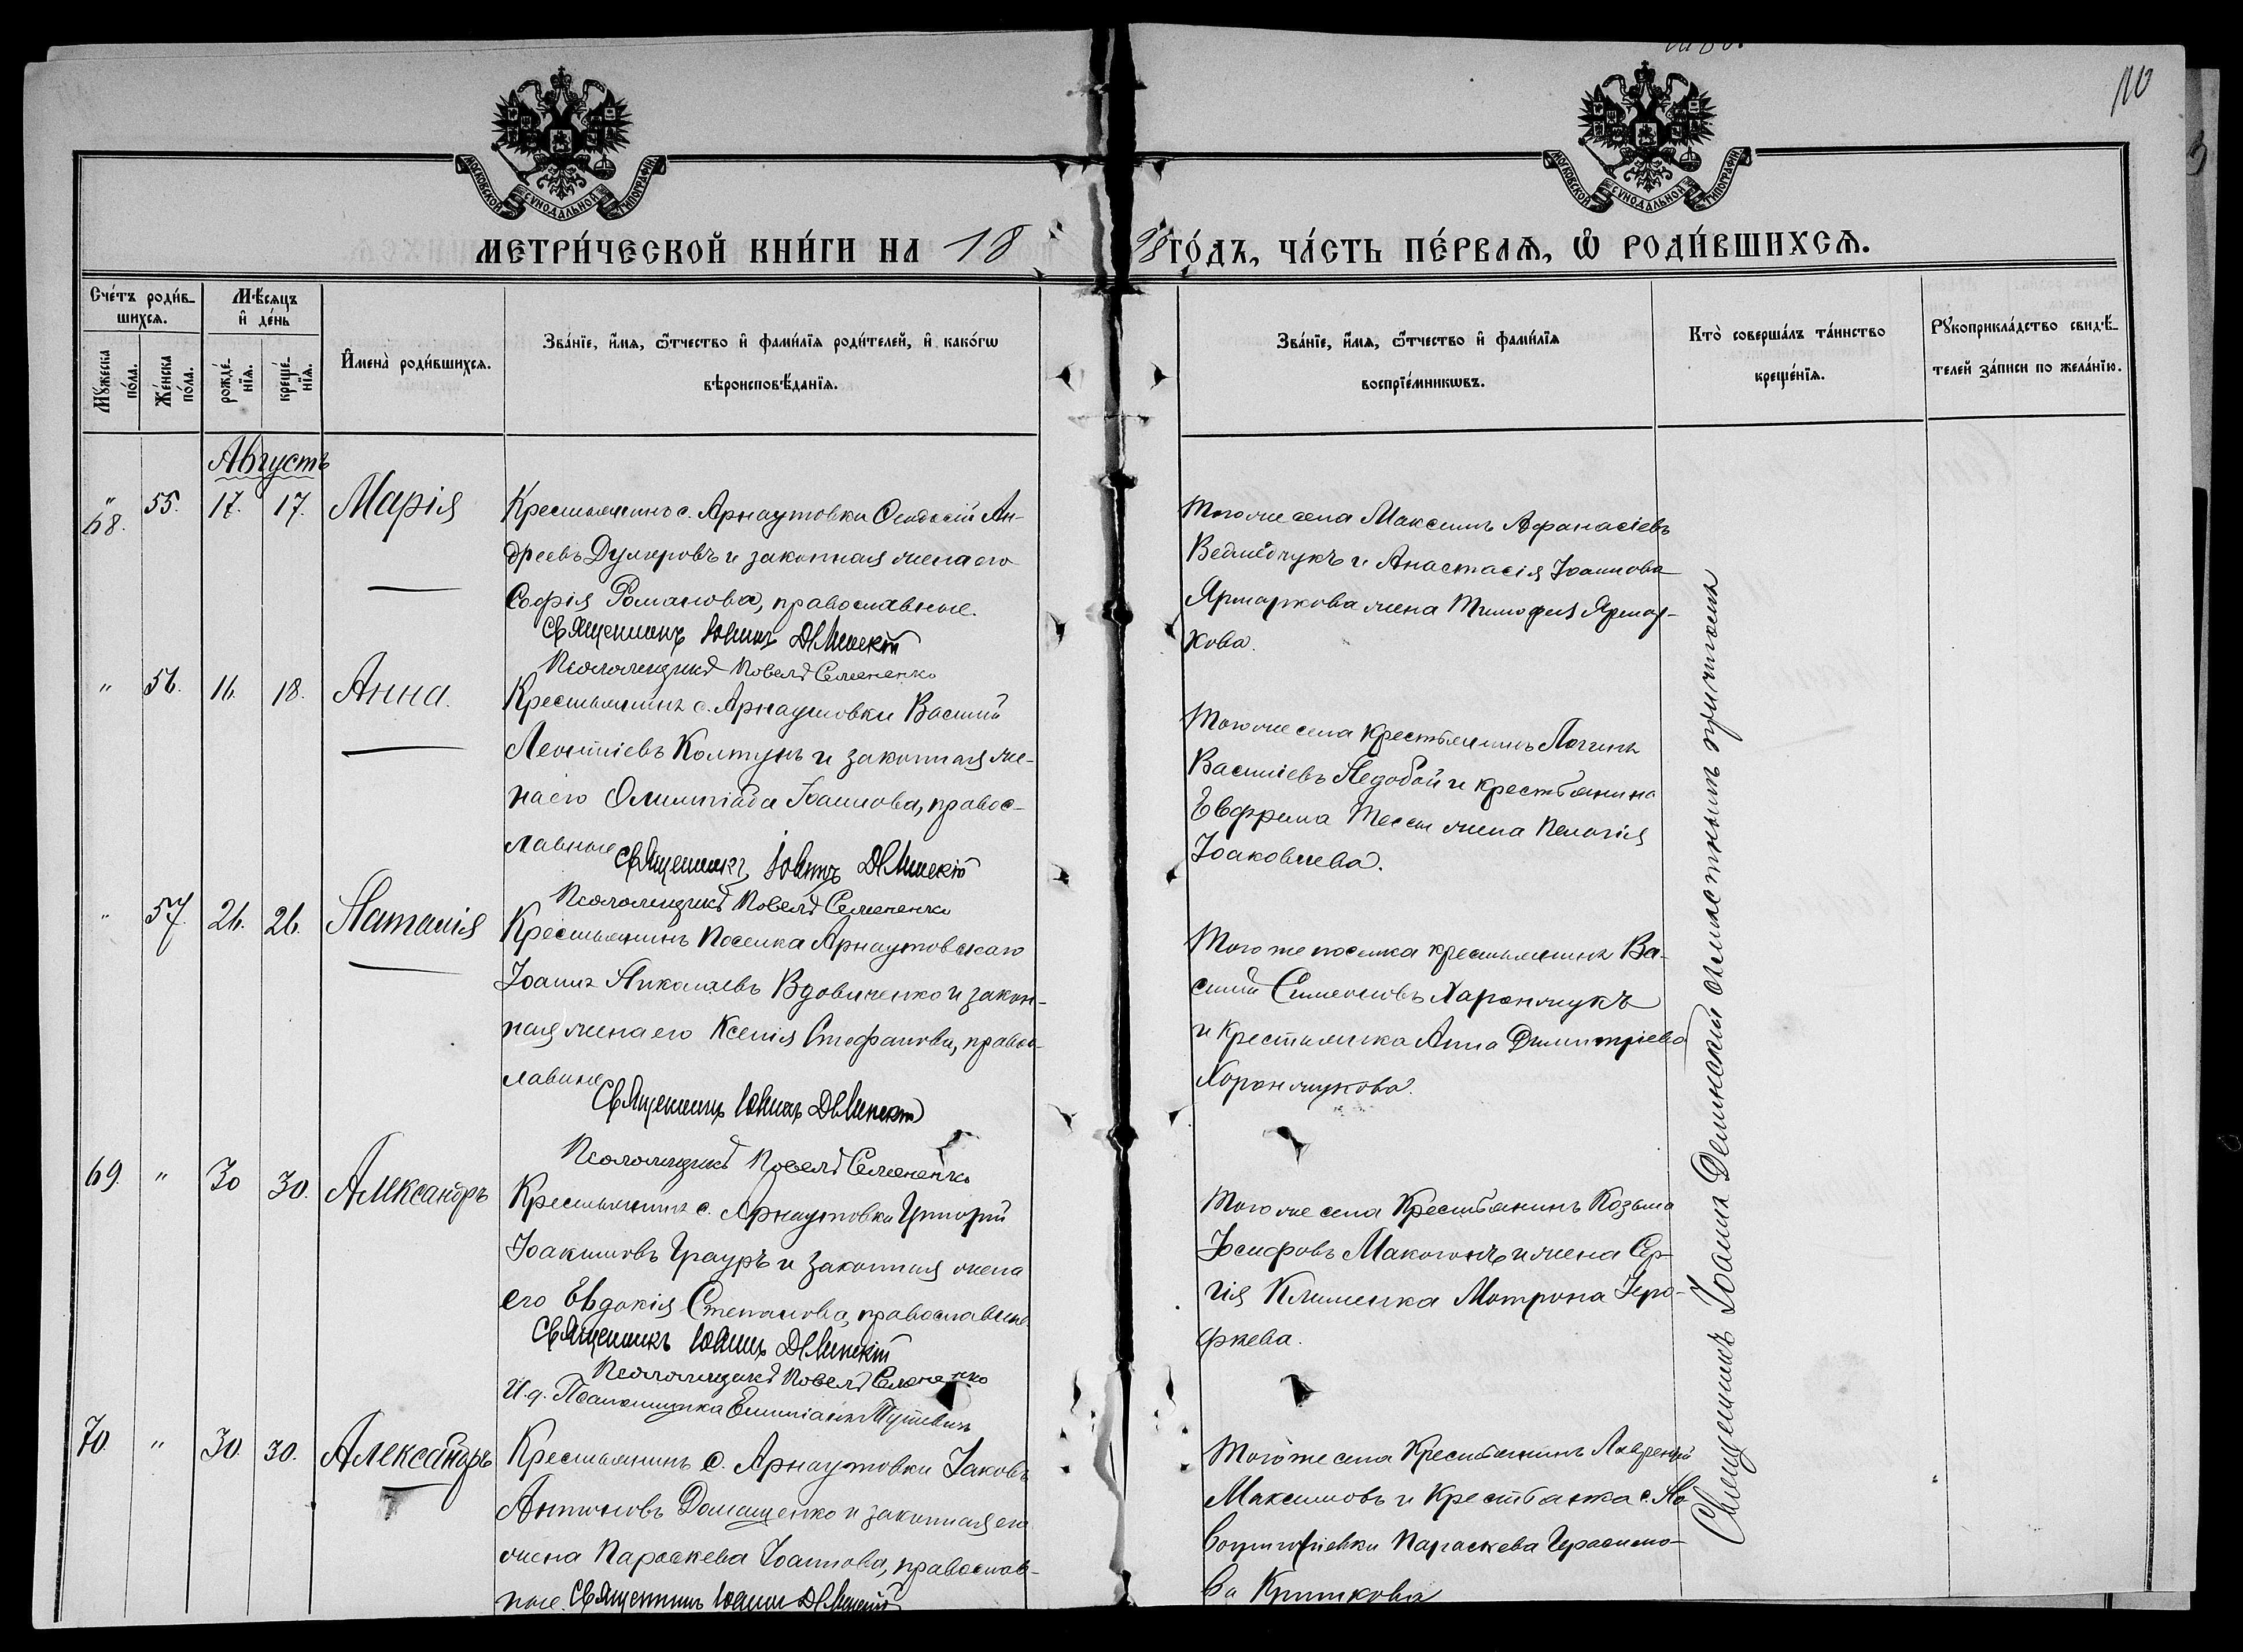 110
МОСКОВСКОЙ СУНОДАЛЬНОЙ ТИПОГРАФІИ
МОСКОВСКОЙ СУНОДАЛЬНОЙ ТИПОГРАФІИ
МЕТРИ́ЧЕСКОЙ КНИ́ГИ НА 1898 ГО́ДЪ, ЧА́СТЬ ПЕ́РВАѦ, Ѡ РОДИ́ВШИХСѦ.
Сче́тъ роди́вшихсѧ.
Мꙋ́жеска по́ла.
Же́нска по́ла.
Мѣ́сѧцъ и҆ де́нь
рожде́нїѧ.
креще́нїѧ.
И҆мена̀ роди́вшихсѧ.
Зва́нїе, и҆́мѧ, ѻ҆́тчество и҆ фами́лїѧ роди́телей, и҆ како́гѡ
вѣроисповѣ́данїѧ.
Зва́нїе, и҆́мѧ, ѻ҆́тчество и҆ фами́лїѧ
воспрїе́мникѡвъ.
Кто̀ соверша́лъ та́инство
креще́нїѧ.
Рꙋкоприкла́дство свидѣ́-
телей за́писи по жела́нїю.
Августъ
" 55. 17. 17. Марія
68.
Крестьянинъ с. Арнаутовки Ан-
дреевъ и законная жена его
Софія Романова, православные.
Священникъ Іоаннъ Дѣлинскій
Псаломщикъ Павелъ Семененко
Тогоже села Максимъ Афанасіевъ
Ведмедчукъ и Анастасія Іоаннова
Ярмаркова жена Тимофея Ярмар-
кова.
" 56. 16. 18. Анна.
Крестьянинъ с. Арнаутовки Василій
Леонтіевъ Колтунъ и законная же-
на его Олимпіада Іоаннова, правос-
лавные
Священникъ Іоаннъ Дѣлинскій
Псаломщикъ Павелъ Семененко
Тогоже села крестьянинъ Логинъ
Василіевъ Недобой и крестьянина
жена Пелагія
Іоаковлева.
" 57. 26. 26. Наталія
Крестьянинъ поселка Арнаутовскаго
Іоаннъ Николаевъ Вдовиченко и закон-
ная жена его Ксенія Стефанова, правос-
лавные
Священникъ Іоаннъ Дѣлинскій
Псаломщикъ Павелъ Семененко
Того же поселка крестьянинъ Ва-
силій Симеоновъ Харончукъ
и крестьянка Анна Димитріева
69. " 30 30. Александръ
Крестьянинъ с. Арнаутовки Григорій
Іоакимовъ Грауръ и законная жена
его Евдокія Степанова, православные
Священникъ Іоаннъ Дѣлинскій
Псаломщикъ Павелъ Семененко
И.д. Псаломщика
Тогоже села Крестьянинъ Козьма
Іосифовъ Макогонъ и жена Сер-
гія Клименка Мотрона
70. " 30. 30. Александръ
Крестьянинъ с. Арнаутовки Іаковъ
Антоновъ Домащенко и законная его
жена Параскева Іоаннова, православ-
ные. Священникъ Іоаннъ Дѣлинскій
Тогоже села Крестьянинъ Лаврентій
Максимовъ и Крестьянка с. Но-
Параскева Герасимо-
ва
Священникъ Іоаннъ Дѣлинскій